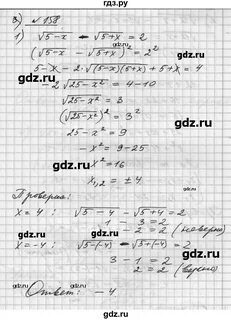 гдз.ру
3) № 158
1) √5-x - √5+x = 2
(√5-x - √5+x)² = 2²
5-x - 2·√(5-x)(5+x) + 5+x = 4
-2√25-x² = 4-10
√25-x² = 3
(√25-x²)² = 3²
25-x² = 9
-x² = 9-25
x² = 16
x₁,₂ = ± 4
Проверка:
x = 4 : √5-4 - √5+4 = 2
1 - 3 = 2
-2 = 2 (неверно)
x = -4 : √5-(-4) - √5+(-4) = 2
3 - 1 = 2
2 = 2 (верно)
Ответ: -4
gdz.ru